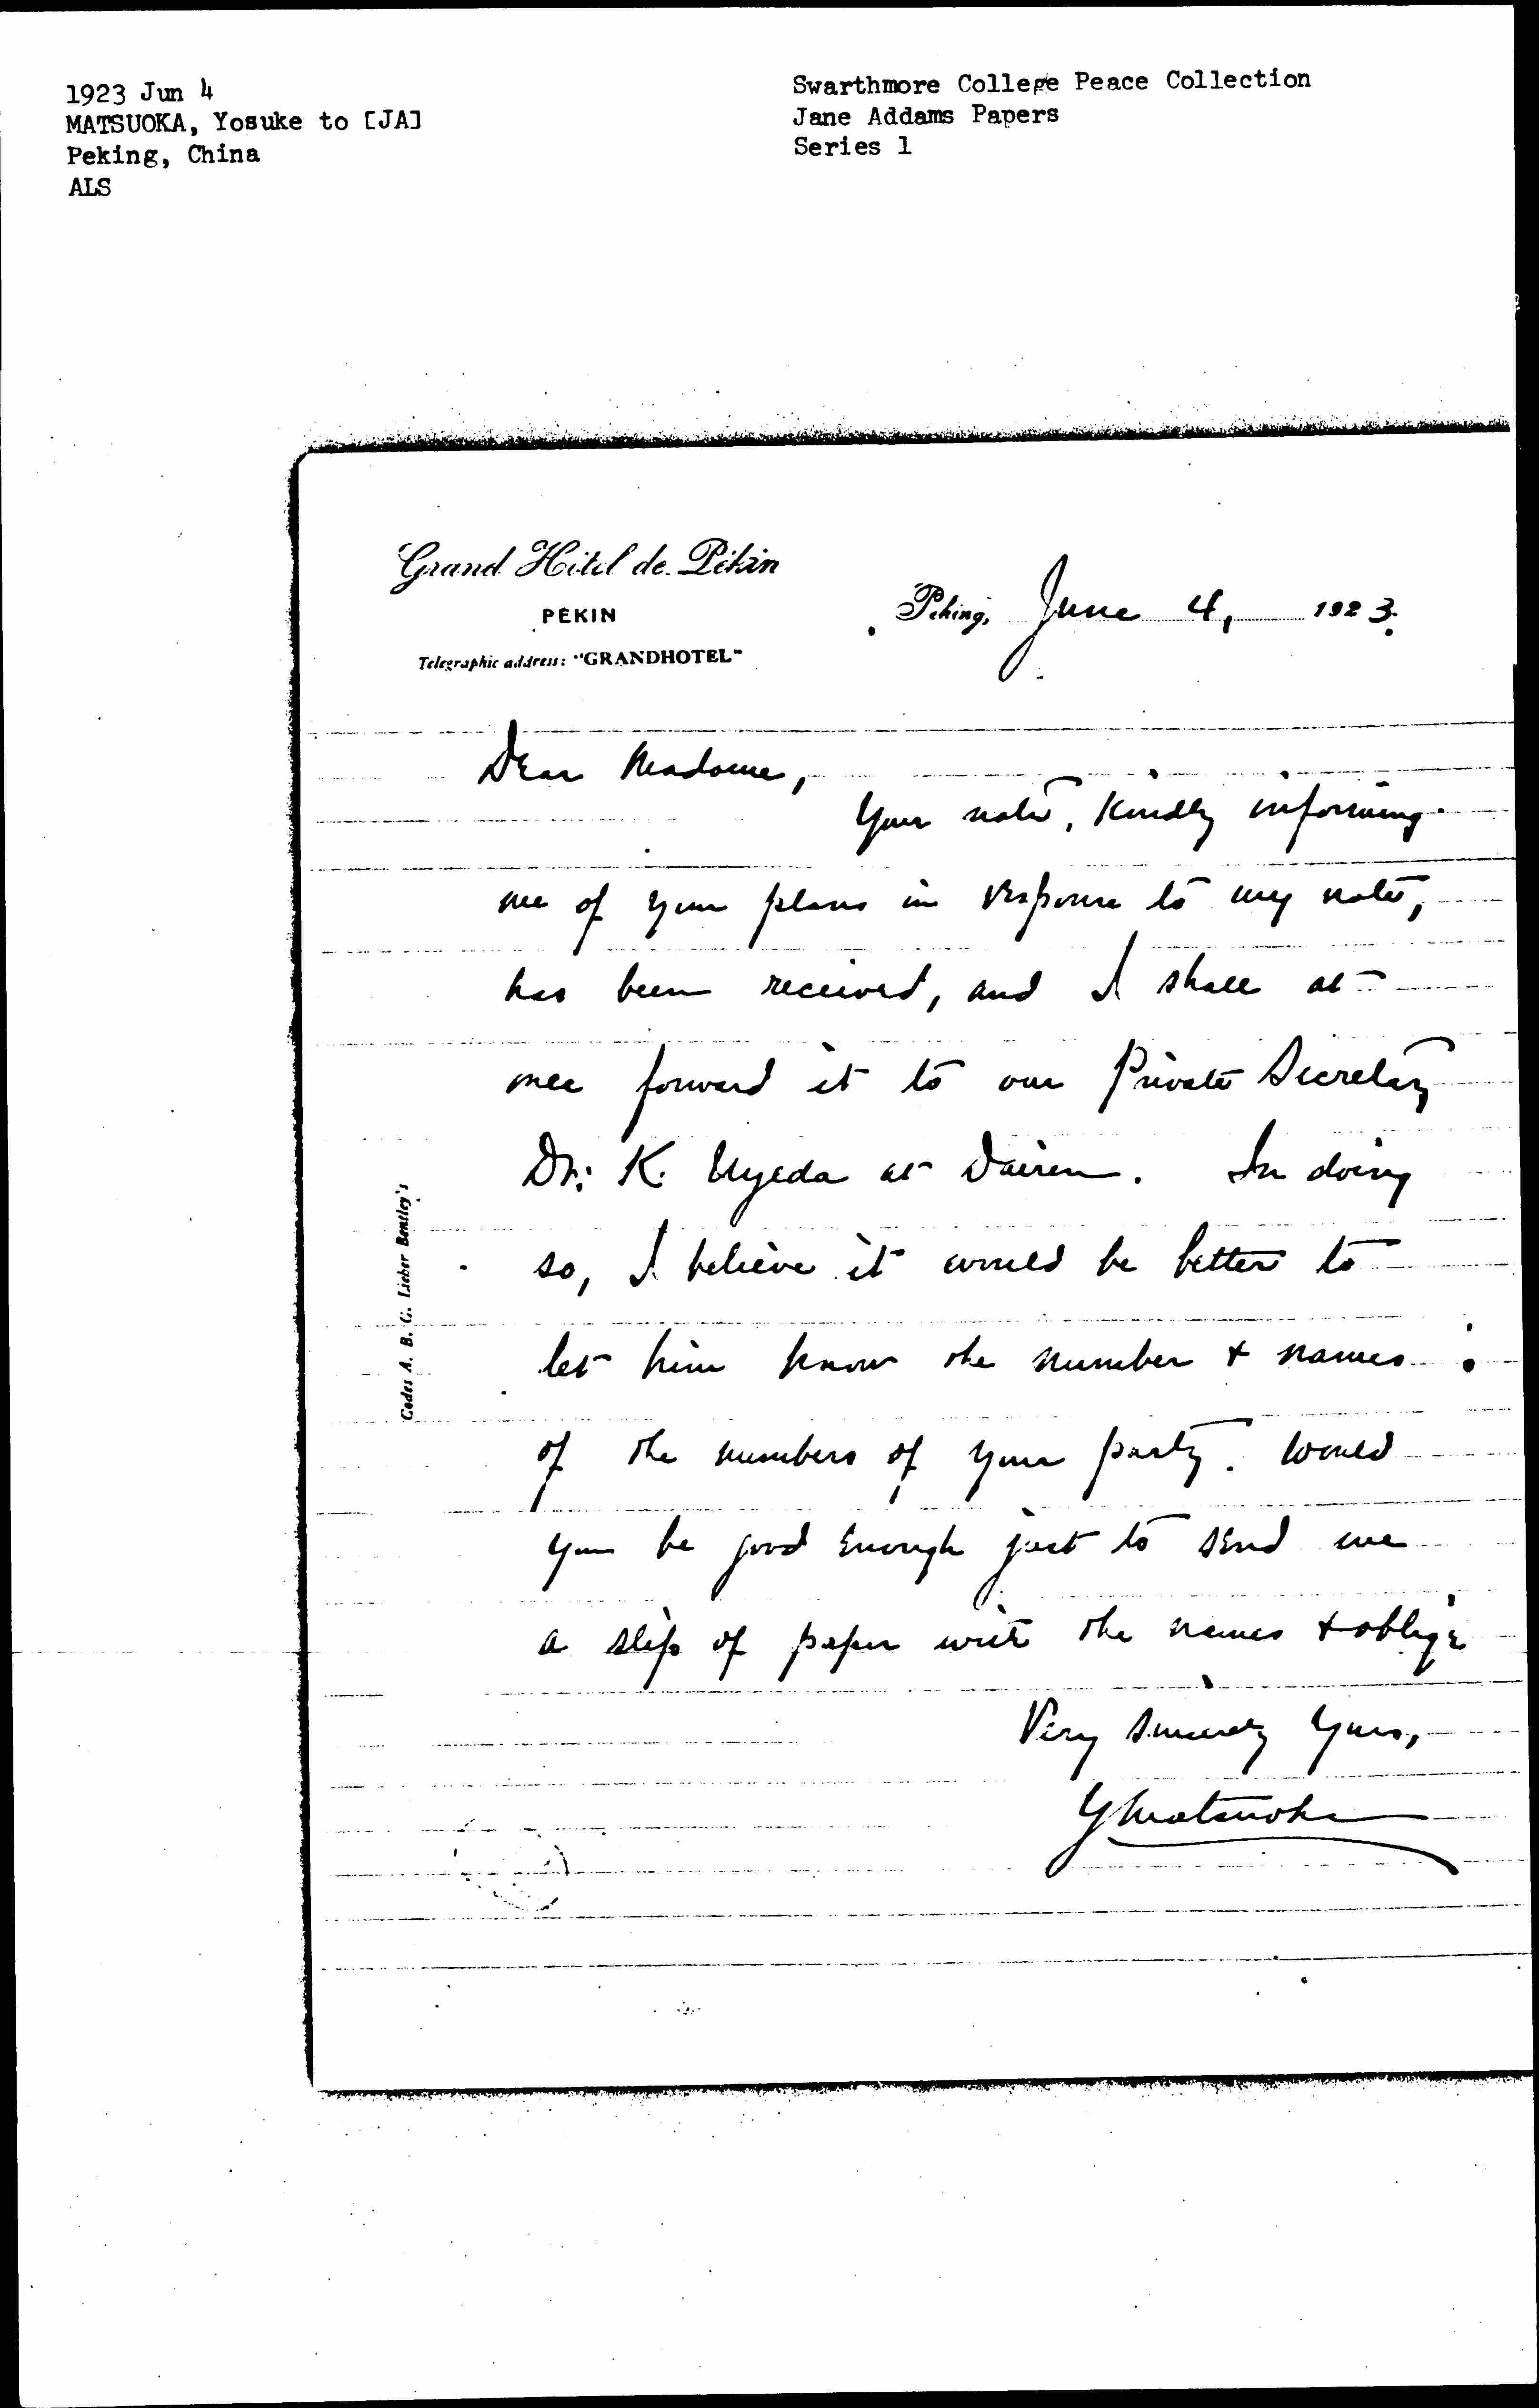 1923 Jun 4
MATSUOKA, Yosuke to [JA]
Peking, China
ALS
Swarthmore College Peace Collection
Jane Addams Papers
Series 1
Grand Hôtel de Pékin
PEKIN
Telegraphic address: "GRANDHOTEL"
Peking, June 4, 1923.
Codes A. B. C. Lieber Bentley's
Dear Madame,
Your note, kindly informing
me of your plans in response to my note,
has been received, and I shall at
once forward it to our Private Secretary
Dr. K. Uyeda at Dairen. In doing
so, I believe it would be better to
let him know the number & names
of the members of your party. Would
you be good enough just to send me
a slip of paper with the names & oblige
Very sincerely yours,
YMatsuoka